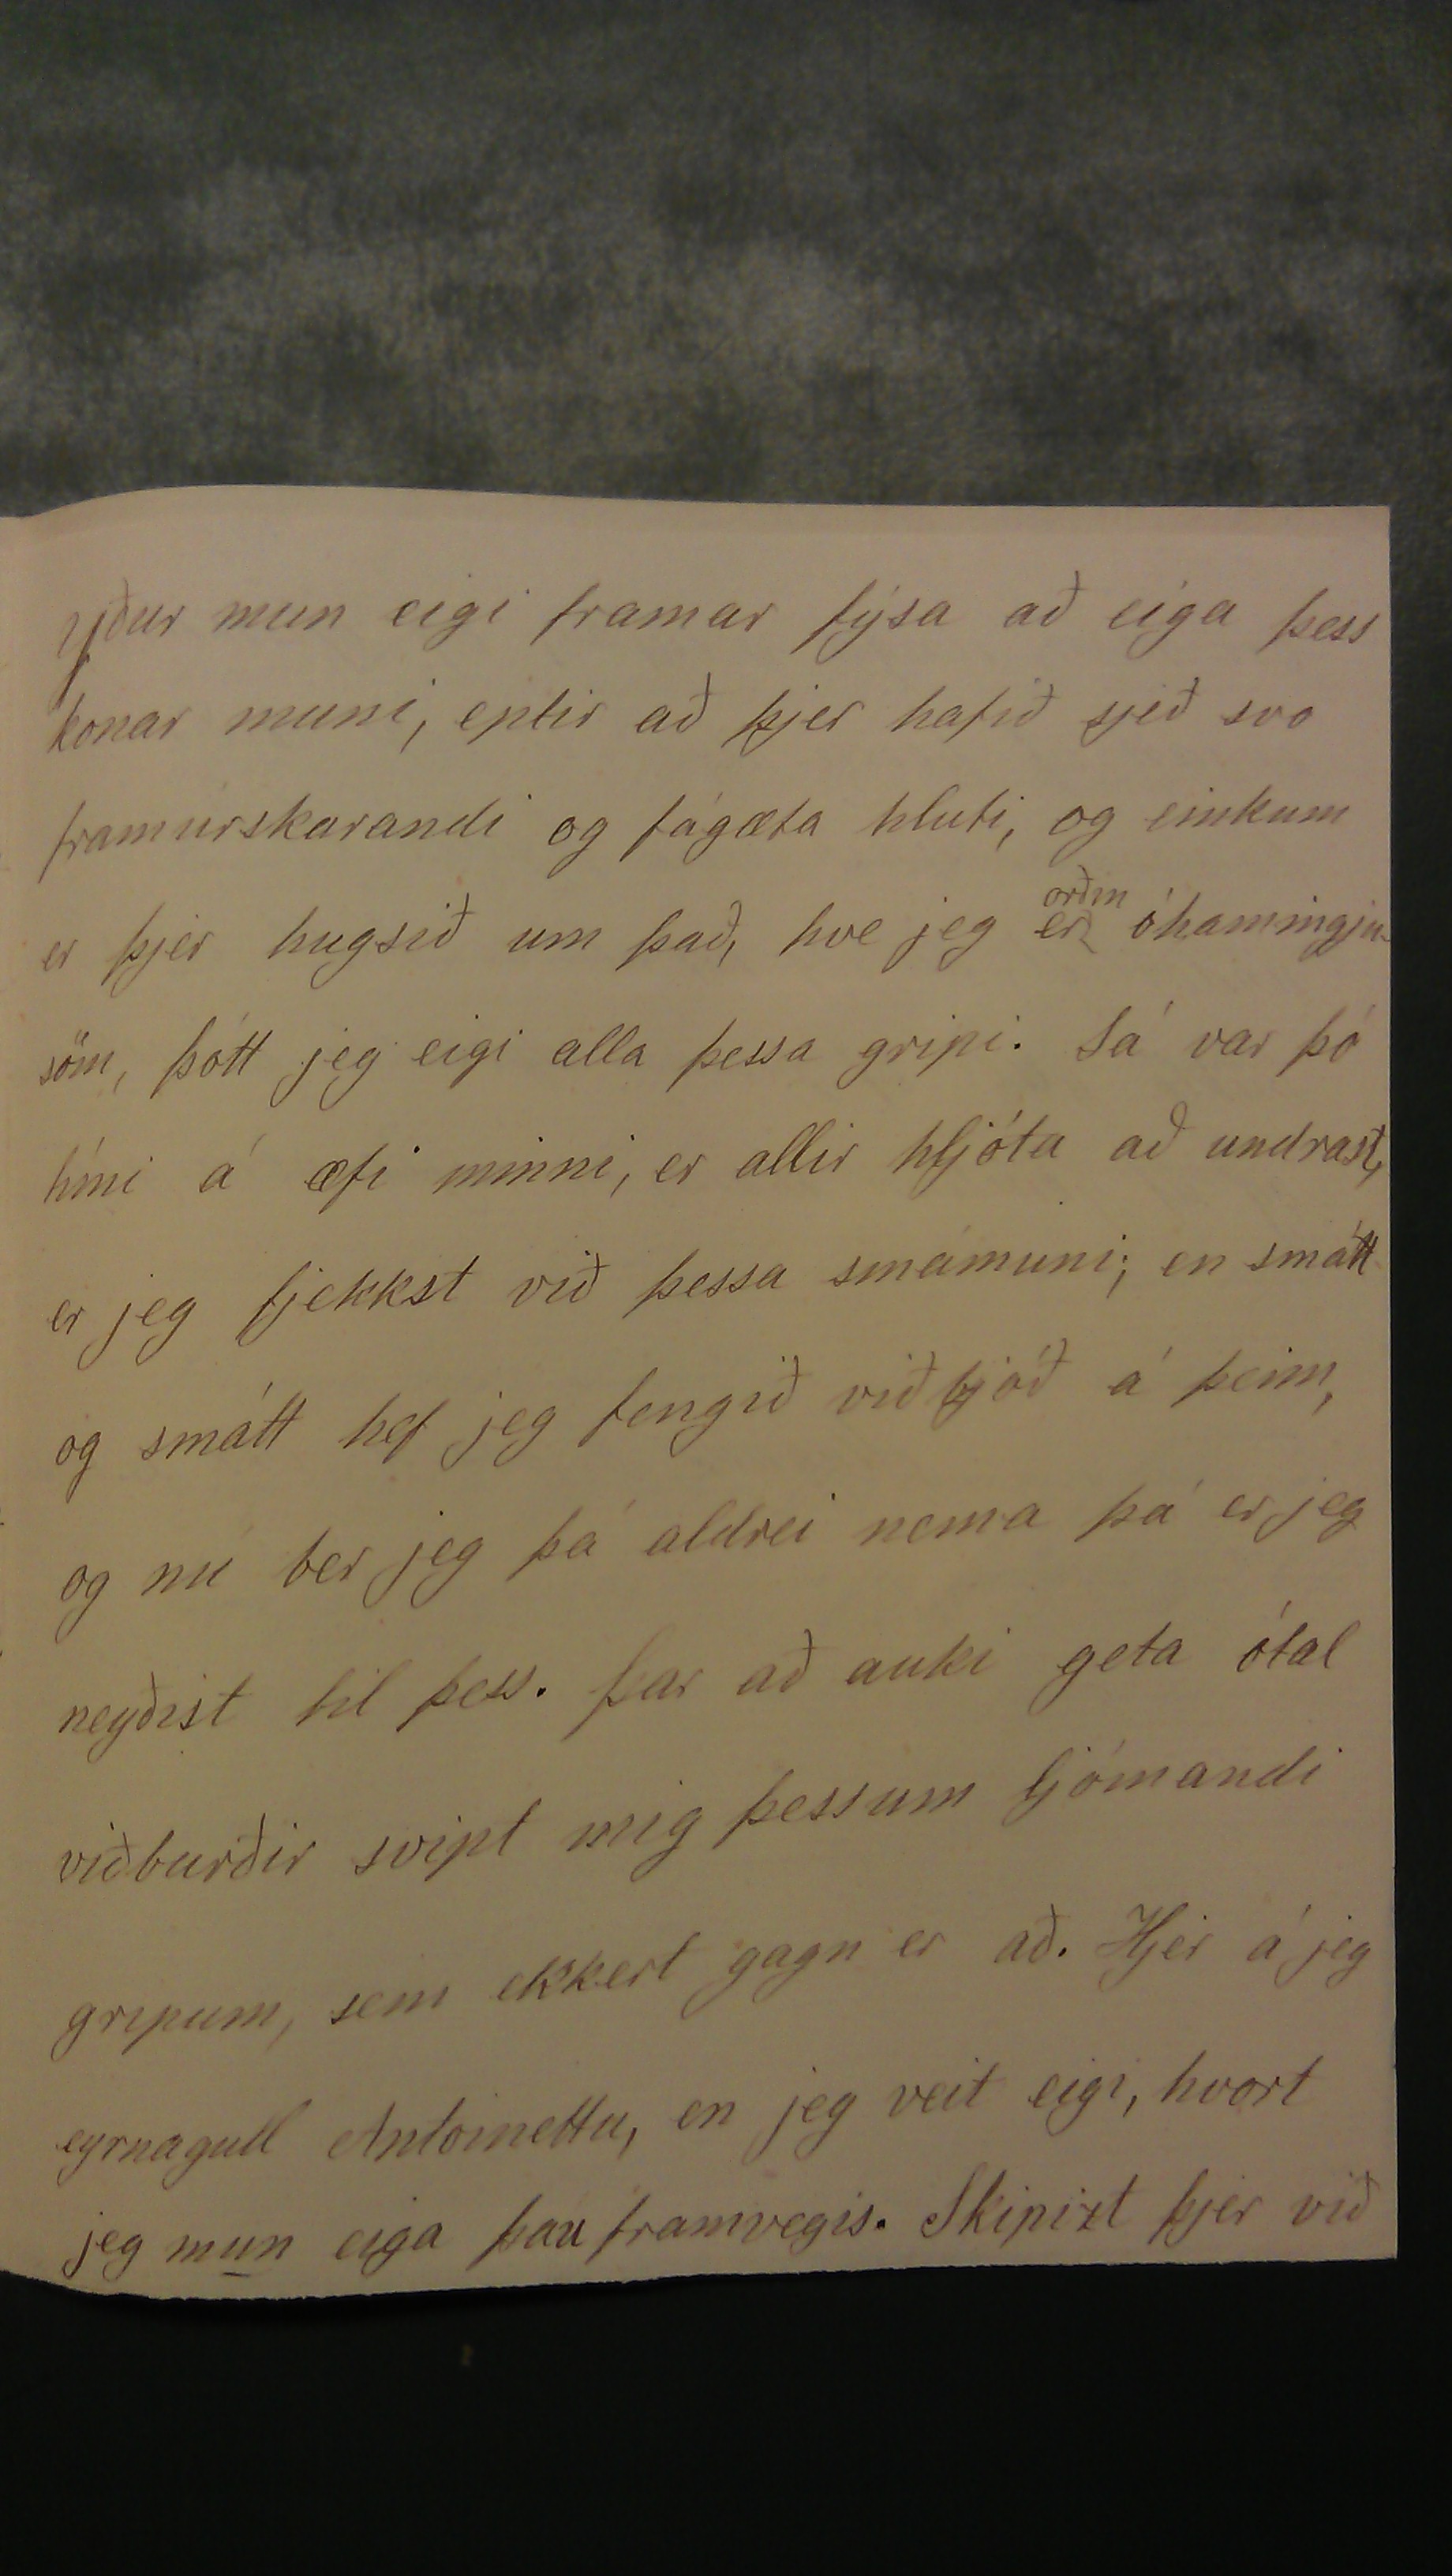 Yður mun eigi framar fýsa að eiga þess
konar muni, eptir að þjer hafið sjeð svo
framúrskarandi og fágæta hluti, og einkum
er þjer hugsið um það, hve jeg er orðin óhamingju-
söm, þótt jeg eigi alla þessa gripi. Sá var þó
tími á æfi minni, er allir hljóta að undrast,
er jeg fjekkst við þessa smámuni; en smátt
og smátt hef jeg fengið viðbjóð á þeim,
og nú ber jeg þá aldrei nema þá er jeg
neyðist til þess. Þar að auki geta ótal
viðburðir svipt mig þessum ljómandi
gripum, sem ekkert gagn er að. Hjer á jeg
eyrnagull Antoinettu, en jeg veit eigi, hvort
jeg mun eiga þau framvegis. Skipizt þjer við